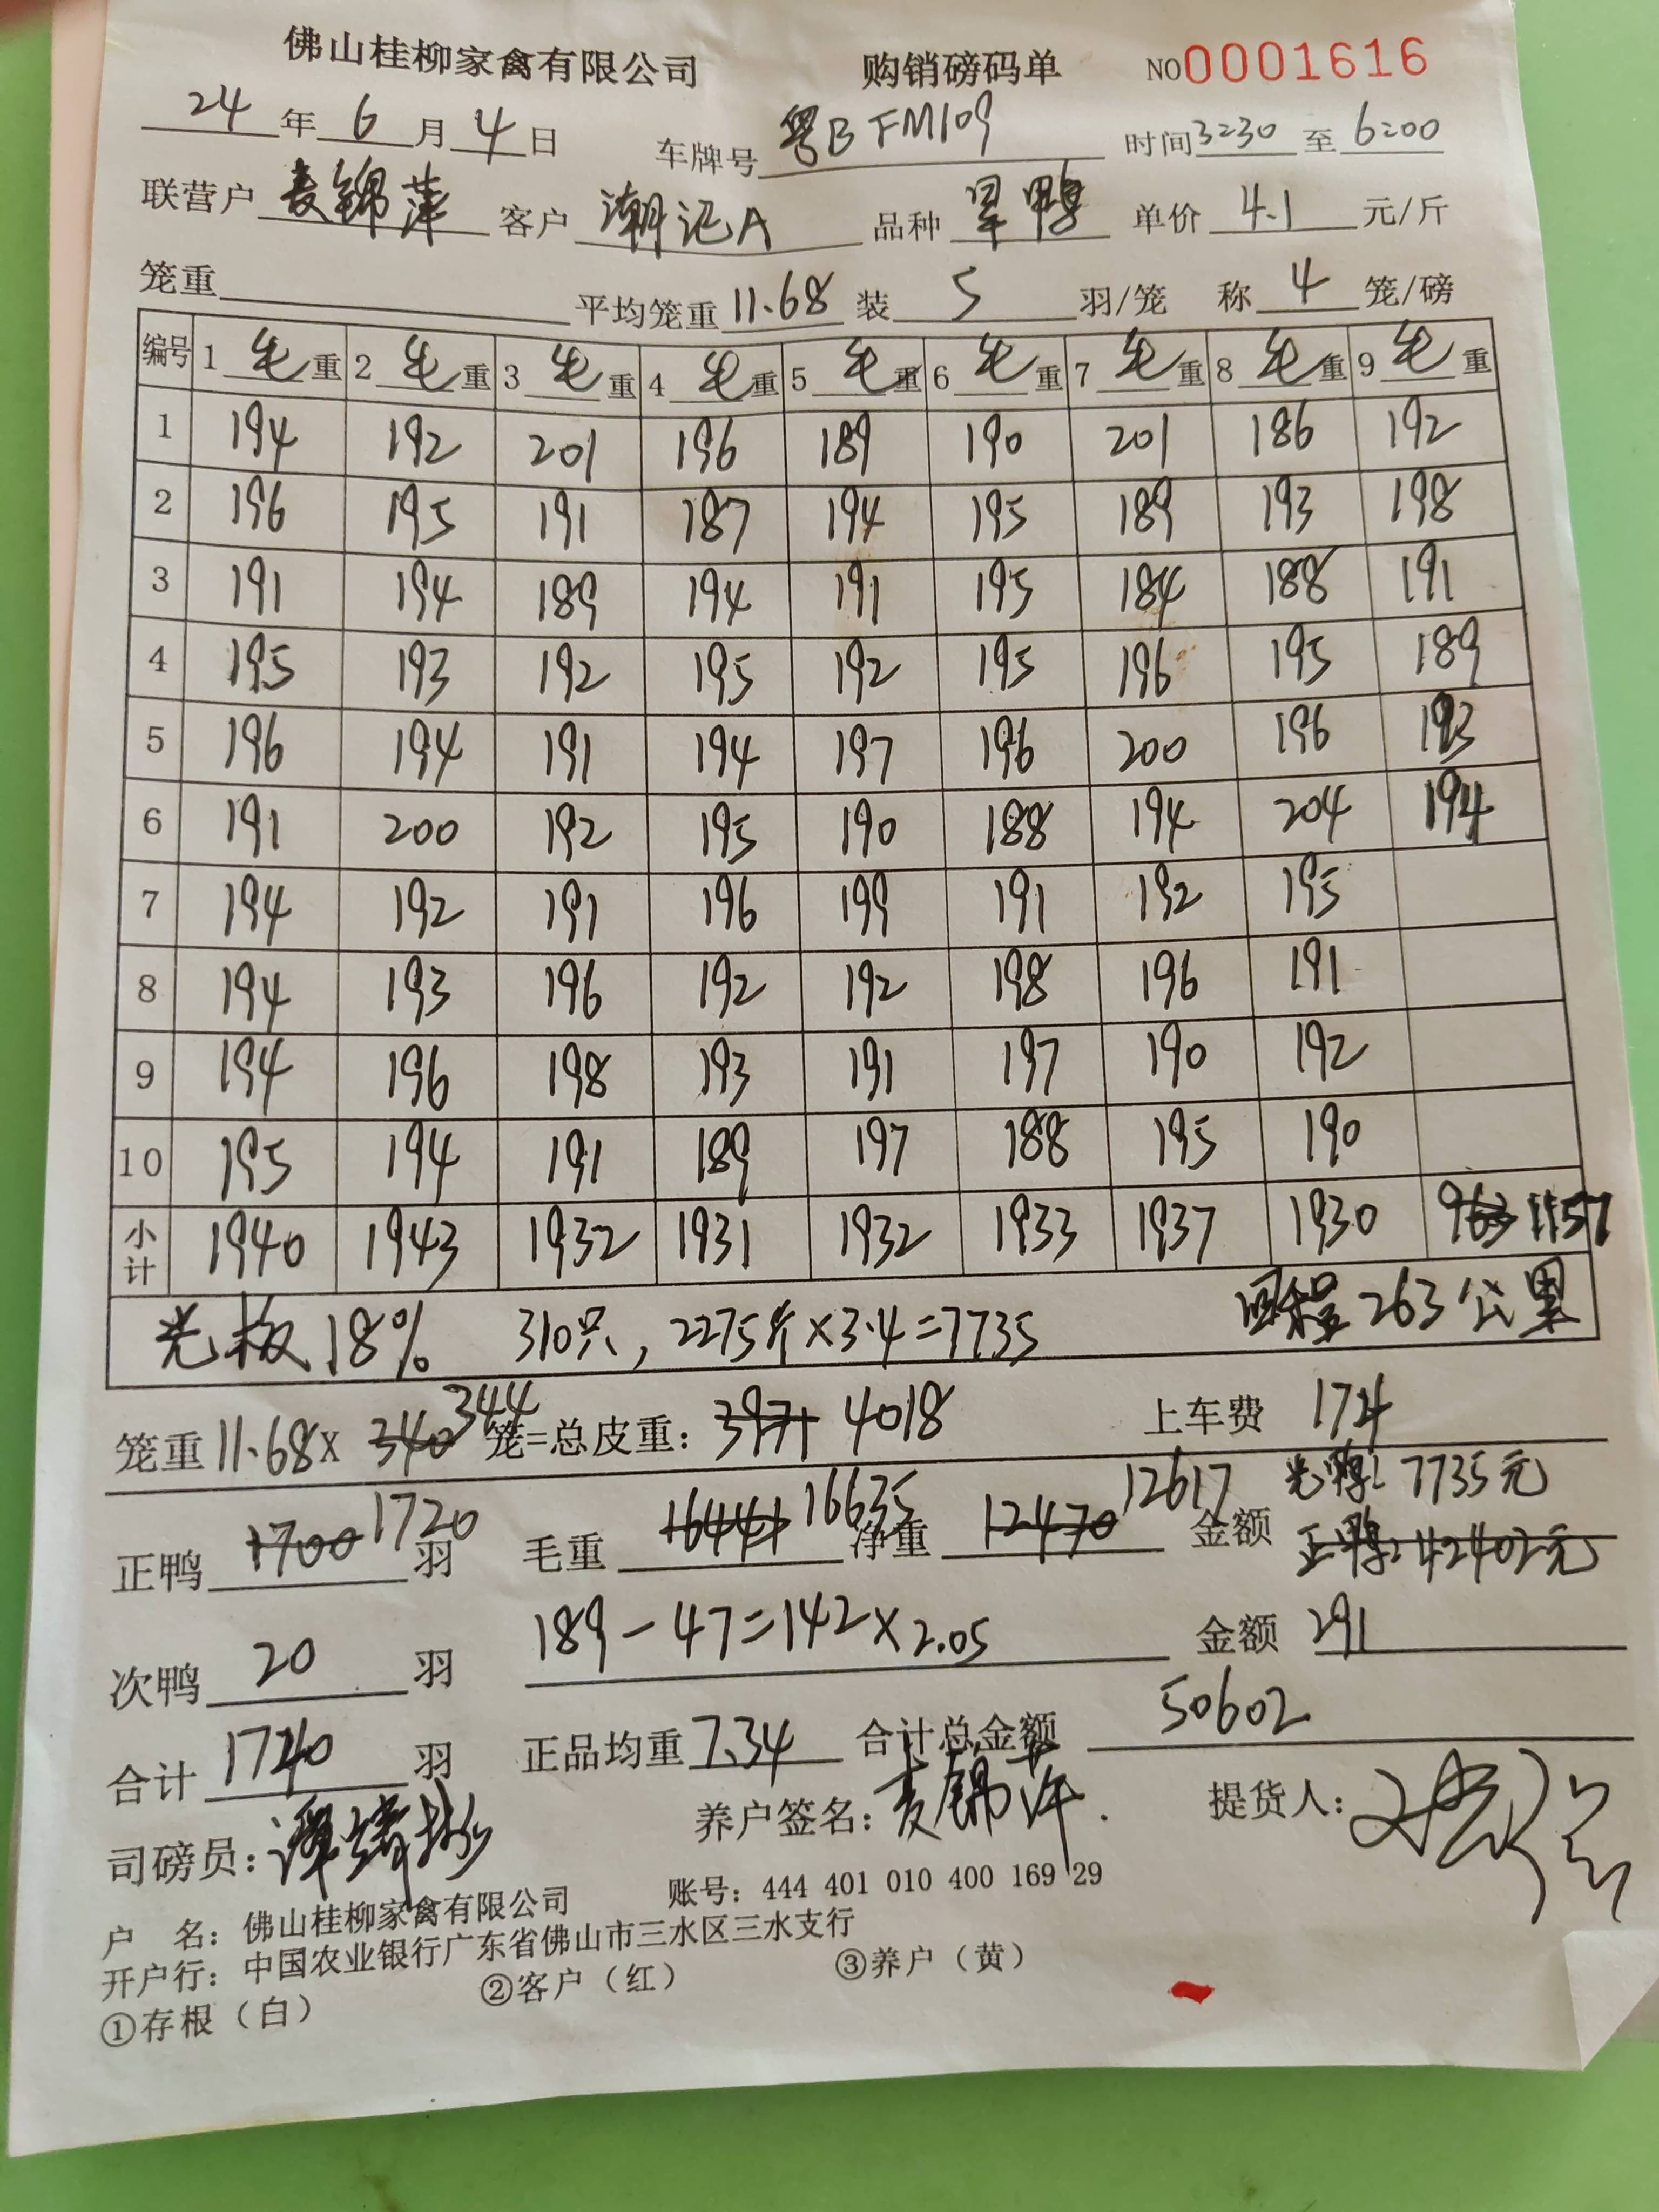 佛山桂柳家禽有限公司 购销磅码单 NO0001616
24年6月4日 车牌号 粤BFM109 时间3:30至6:00
联营户 麦锦萍 客户 潮记A 品种 旱鸭 单价 4.1 元/斤
笼重 平均笼重11.68 装 5 羽/笼 称 4 笼/磅
编号 1 毛重 2 毛重 3 毛重 4 毛重 5 毛重 6 毛重 7 毛重 8 毛重 9 毛重
1 194 192 201 196 189 190 201 186 192
2 196 195 191 187 194 195 189 193 198
3 191 194 189 194 191 195 184 188 191
4 195 193 192 195 192 195 196 195 189
5 196 194 191 194 197 196 200 196 193
6 191 200 192 195 190 188 194 204 194
7 194 192 191 196 199 191 192 195
8 194 193 196 192 192 198 196 191
9 194 196 198 193 191 197 190 192
10 195 194 191 189 197 188 195 190
小计 1940 1943 1932 1931 1932 1933 1937 1930 963 1157
光板18% 310只，2275斤×3.4=7735 回程263公里
笼重11.68× 340 344 笼=总皮重：3971 4018 上车费 174
正鸭 1700 1720 羽 毛重 16441 16635 净重 12470 12617 金额 光鸭：7735元
正鸭：42402元
次鸭 20 羽 189-47=142×2.05 金额 291
合计 1740 羽 正品均重7.34 合计总金额 50602
司磅员： 养户签名：麦锦萍 提货人：
户 名：佛山桂柳家禽有限公司 账号：444 401 010 400 169 29
开户行：中国农业银行广东省佛山市三水区三水支行
①存根（白） ②客户（红） ③养户（黄）